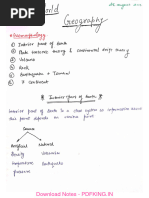 World
Geography
* Geomorphology
① Interior part of Earth
② Plate tectonic theory & continental drift theory
③ Volcano
④ Rock
⑤ Earthquake & Tsunami
⑥ 7 Continent
* Interior part of Earth *
Interior part of Earth is a
this part depends on various
Source
Artificial
Natural
Density
Volcanism
Temperature
Earthquake
Pressure
Download Notes - PDFKING.IN